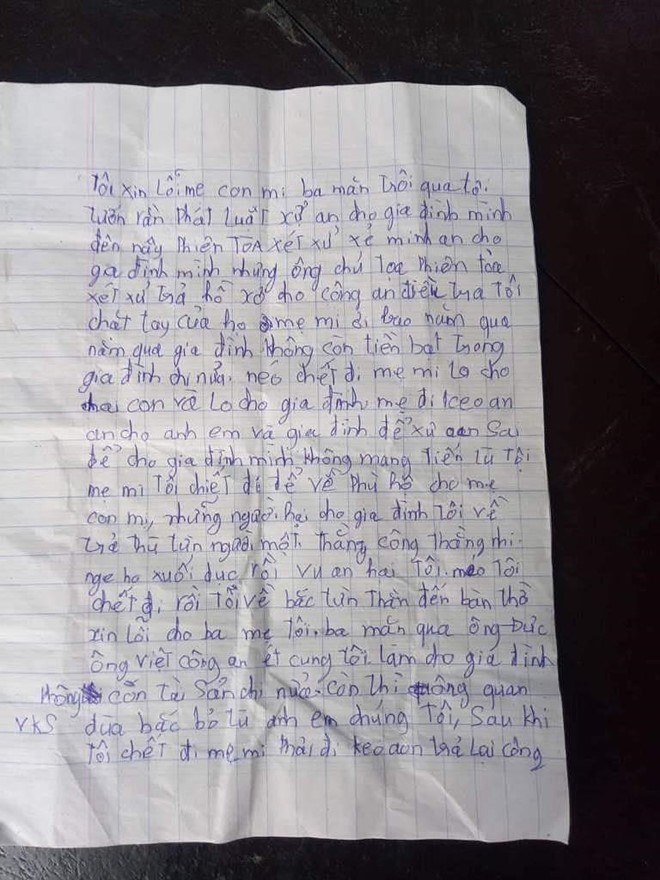 Tôi xin lối mẹ con mi ba măn trôi qua tôi
luôn rằn Phát luật xử an cho gia đình mình
đến nầy Phiên TOA xét xử xẻ minh an cho
gia đình mình nhưng ông chủ toạ Phiên tòa
xét xử trả hồ xơ cho công an điều tra Tôi
chất tay của họ mẹ mi ơi bao năm qua
năm quá gia đình không con tiền bạt trong
gia đình chi nửa. neó chết đi mẹ mi lo cho
hai con và lo cho gia đình mẹ đi keo an
an cho anh em và gia đình để xử oan Sa
để cho gia đình mình không mang tiến tù tội
mẹ mi Tôi chiết đi để về Phù hổ cho mẹ
con mi, những người hại cho gia đình tôi về
trả thù từn người một. thằng công thằng nhi
nge họ xuối dục rồi vu an hai Tôi. méo tôi
chết đi rồi Tôi về bắc từn Thằn đến bàn thờ
xin lỗi cho ba mẹ Tôi. ba măn qua ông Đức
ông việt công an ét cung tôi làm cho gia đình
không còn tà Sản chi nửa. còn thì ông quan
VKS dùa bắc bỏ tù anh em chúng Tôi, Sau khi
Tôi chết đi mẹ mi Phải đi keo aon trả lại công